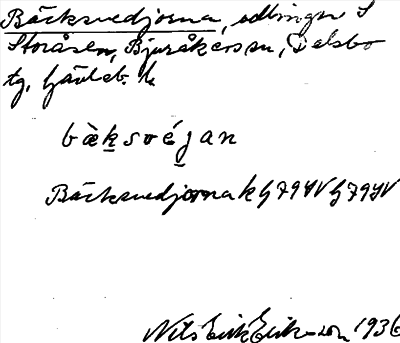 Bäcksvedjorna, odlingar S
Storåsen, Bjuråkers sn, Delsbo
tg, Gävleb. l.
bæ̀ḵsvéj̱an
Bäcksvedjorna k G 794 V G 794 V
Nils Erik Eriksson 1936